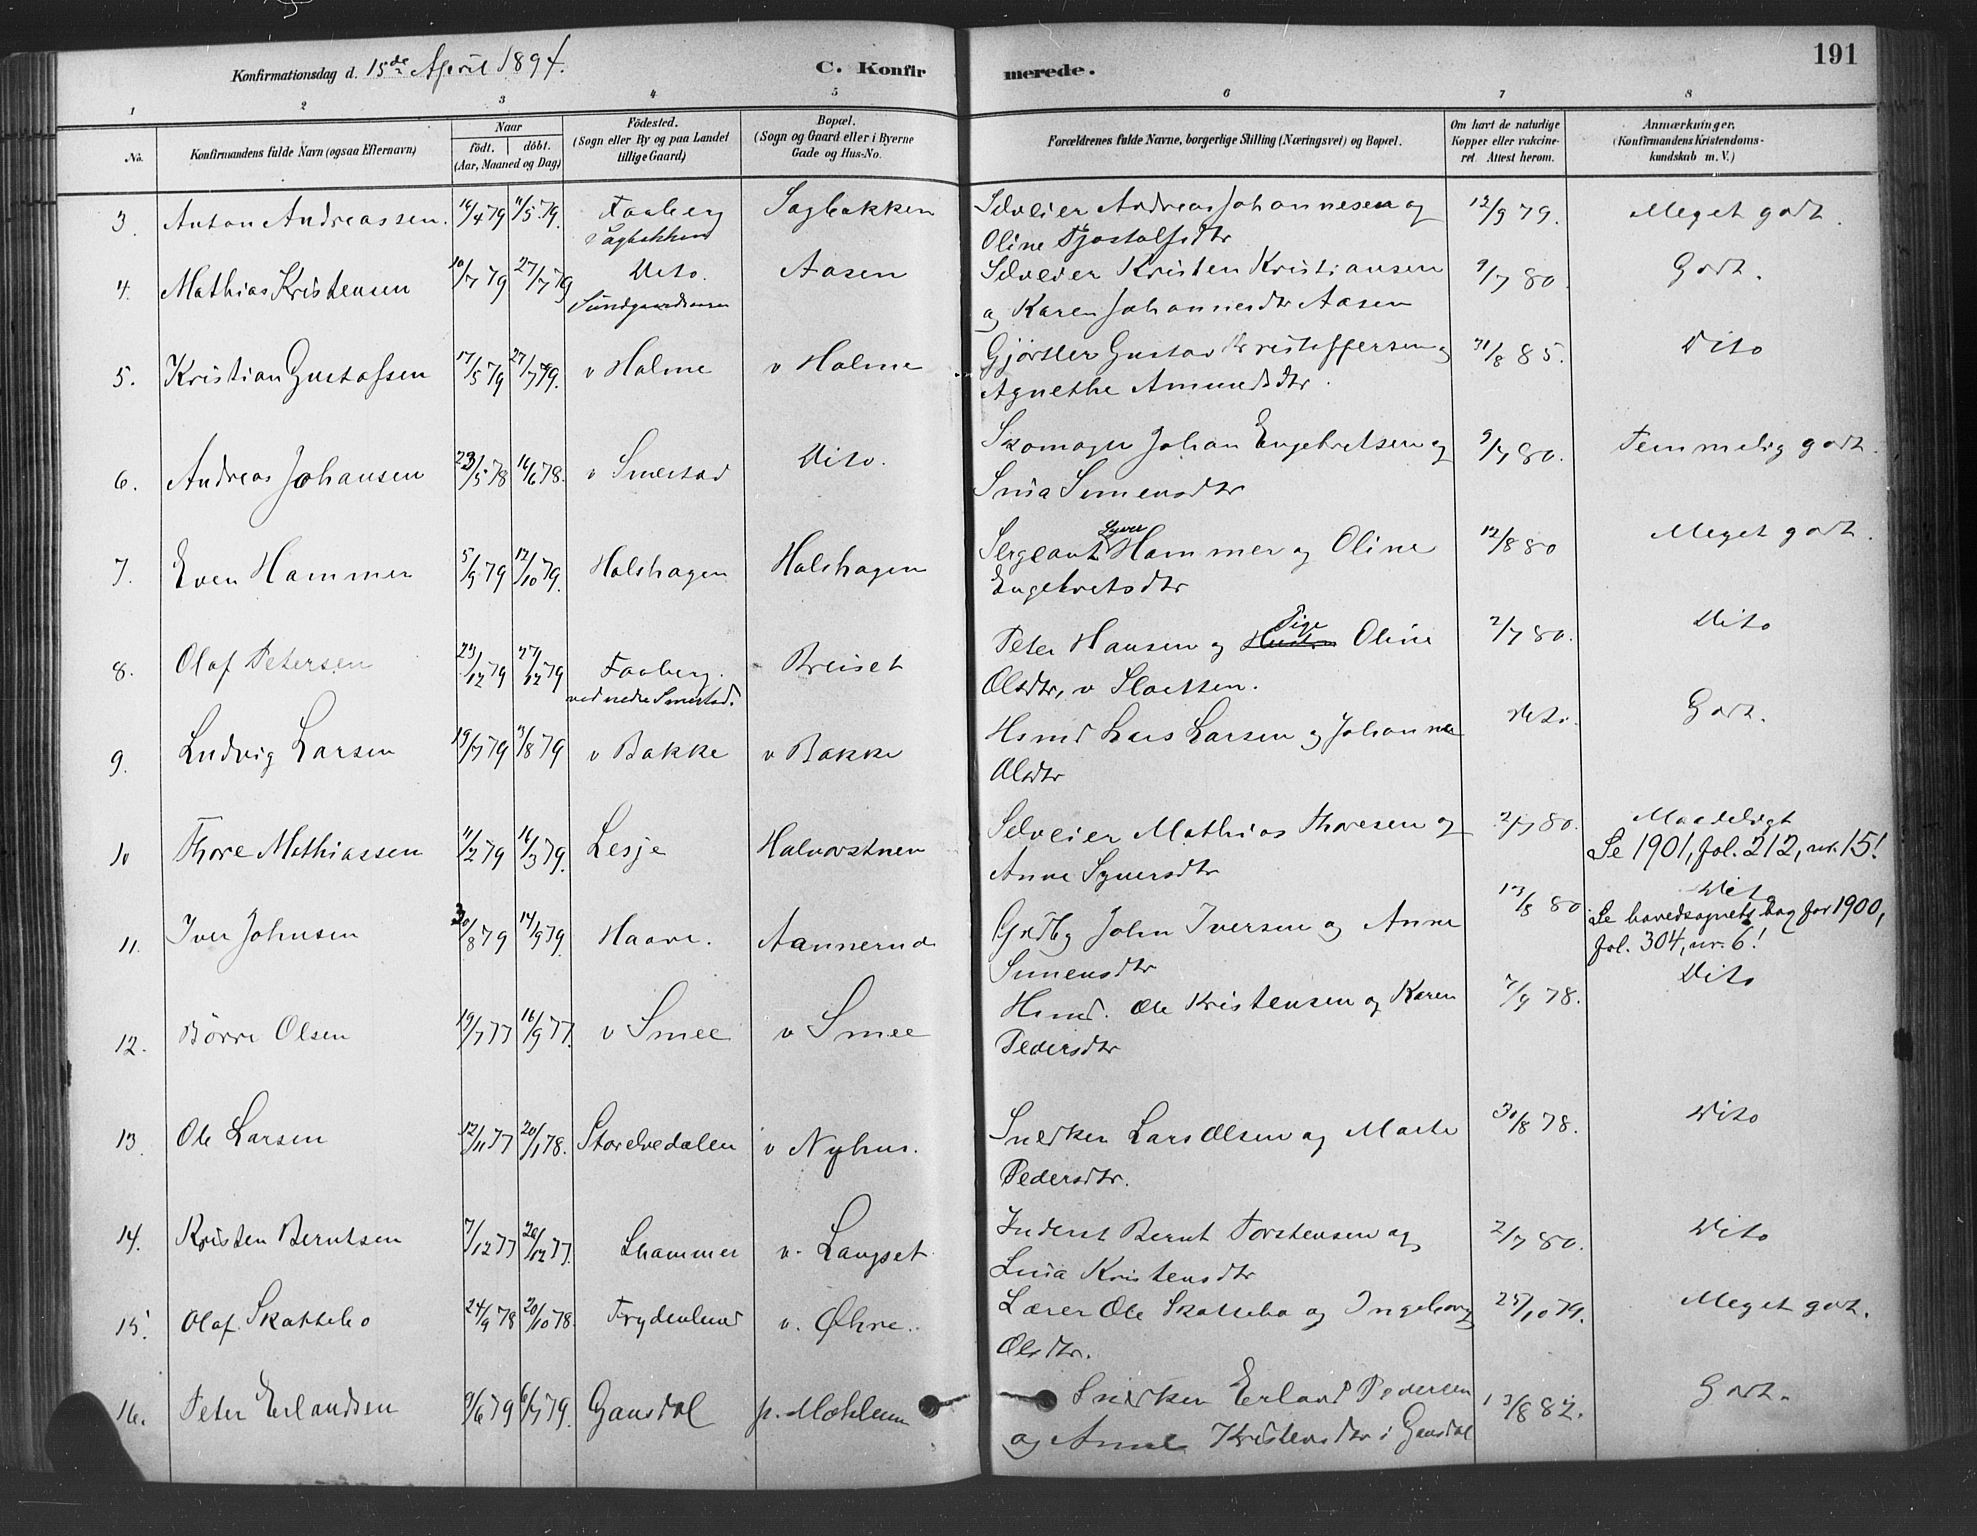 Konfirmationsdag d. 15de April 1894.
C. Konfirmerede.
191
1 2 3 4 5 6 7 8
No.
Konfirmandens fulde Navn (ogsaa Efternavn)
Naar
födt. döbt.
(Aar, Maaned og Dag)
Födested.
(Sogn eller By og paa Landet
tillige Gaard)
Bopæl.
(Sogn og Gaard eller i Byerne
Gade og Hus-No.
Forældrenes fulde Navne, borgerlige Stilling (Næringsvei) og Bopæl.
Om havt de naturlige
Kopper eller vakcine-
ret Attest herom.
Anmærkninger.
(Konfirmandens Kristendoms-
kundskab m. V.)
3. Anton Andreassen. 16/4 79 11/5 79. Faaberg Sagbakken Selveier Andreas Johannesen og 12/9 79. Meget godt.
Sagbakken Oline Tjostolfsdtr
4. Mathias Kristensen 10/7 79 27/7 79 Dito. Aasen Selveier Kristen Kristiansen 9/7 80. Godt.
Sundgaardsaasen og Karen Johannesdtr Aasen
5. Kristian Gustafsen 17/5 79 27/7 79. v Holme v Holme Gjørtler Gustav Kristoffersen og 31/8 85. Dito
Agnethe Amundsdtr.
6. Andreas Johansen 23/5 78 16/6 78. v Smestad Dito. Skomager Johan Engebretsen og 9/7 80. Temmelig godt.
Sina Simensdtr
7. Even Hammer 5/9 79 12/10 79. Holshagen Holshagen Sergeant Syver Hammer og Oline 12/8 80 Meget godt.
Engebretsdtr
8. Olaf Petersen 23/12 79 27/12 79 Faaberg. Breiset Peter Hansen og Pige Oline 2/7 80. Dito
ved nedre Smestad. Olsdtr, v Sletten.
9. Ludvig Larsen 19/7 79 3/8 79 v Bakke v Bakke Hsmd Lars Larsen og Johanne dito. Godt.
Olsdtr
10 Thore Mathiassen 11/2 79 16/3 79. Lesje Halvorstuen Selveier Mathias Thoresen og 2/7 80. Maadeligt
Anne Syversdtr Se 1901, fol. 212, nr. 15!
11. Iver Johnsen 30/8 79 14/9 79. Haave. Aannerud Grdby John Iversen og Anne 13/8 80 Dit
Simensdtr Se hovedsognets bog for 1900,
fol. 304, nr. 6!
12. Börre Olsen 19/7 77 16/9 77. v Smee v Smee Hsmd. Ole Kristensen og Karen 7/9 78. Dito
Pedersdtr
13. Ole Larsen 12/11 77 20/1 78. Storelvedalen v Nyhus. Snedker Lars Olsen og Marte 30/8 78. Dito
Pedersdtr.
14. Kristen Berntsen 7/12 77 26/12 77. Lhammer v. Langset Inderst Bernt Torstensen og 2/7 80. Dito
Lina Kristensdtr
15. Olaf Skattebo 24/9 78 20/10 78. Frydenlund v. Øhre. Lærer Ole Skattebo og Ingeborg 25/10 79. Meget godt.
Olsdtr.
16. Peter Erlandsen 9/6 79 6/7 79. Gausdal p. Mæhlum Snedker Erland Pedersen 13/8 82. Godt.
og Anne Kristensdtr i Gausdal